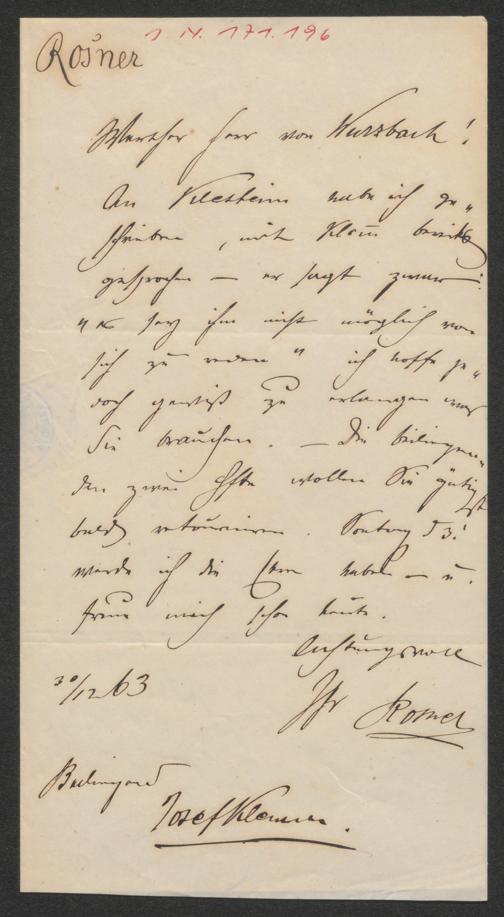 I. N. 171.196
Rosner
Werther Herr von Wurzbach!
An Klesheim habe ich ge„
schrieben, mit Klein bereits
gesprochen — er sagt zwar:
„es sey ihm nicht möglich von
sich zu reden" ich hoffe je„
doch gewiß zu erlangen was
Sie brauchen. — Die beiliegen„
den zwei Hefte wollen Sie gütigst
bald retourniren. Sontag d 3!
werde ich die haben — u.
freue mich schon heute.
Achtungsvoll
Ihr Rosner
30/12 63
Beiliegend
Josef Klemm.